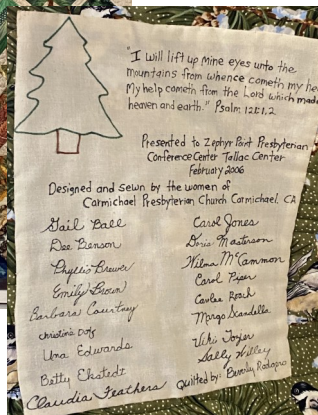 "I will lift up mine eyes unto the
mountains from whence cometh my he
My help cometh from the Lord which made
heaven and earth." Psalm 121:1,2
Presented to Zephyr Point Presbyterian
Conference Center Tallac Center
February 2006
Designed and sewn by the women of
Carmichael Presbyterian Church Carmichael, CA
Gail Ball
Dee Benson
Phyllis Brewer
Emily Brown
Barbara Courtney
Christine
Una Edwards
Betty Ekstedt
Claudia Feathers
Carol Jones
Doris Masterson
Wilma McCammon
Carol Piper
Roach
Margo Scandella
Vicki Toyer
Sally Willey
Quilted by: Beverly